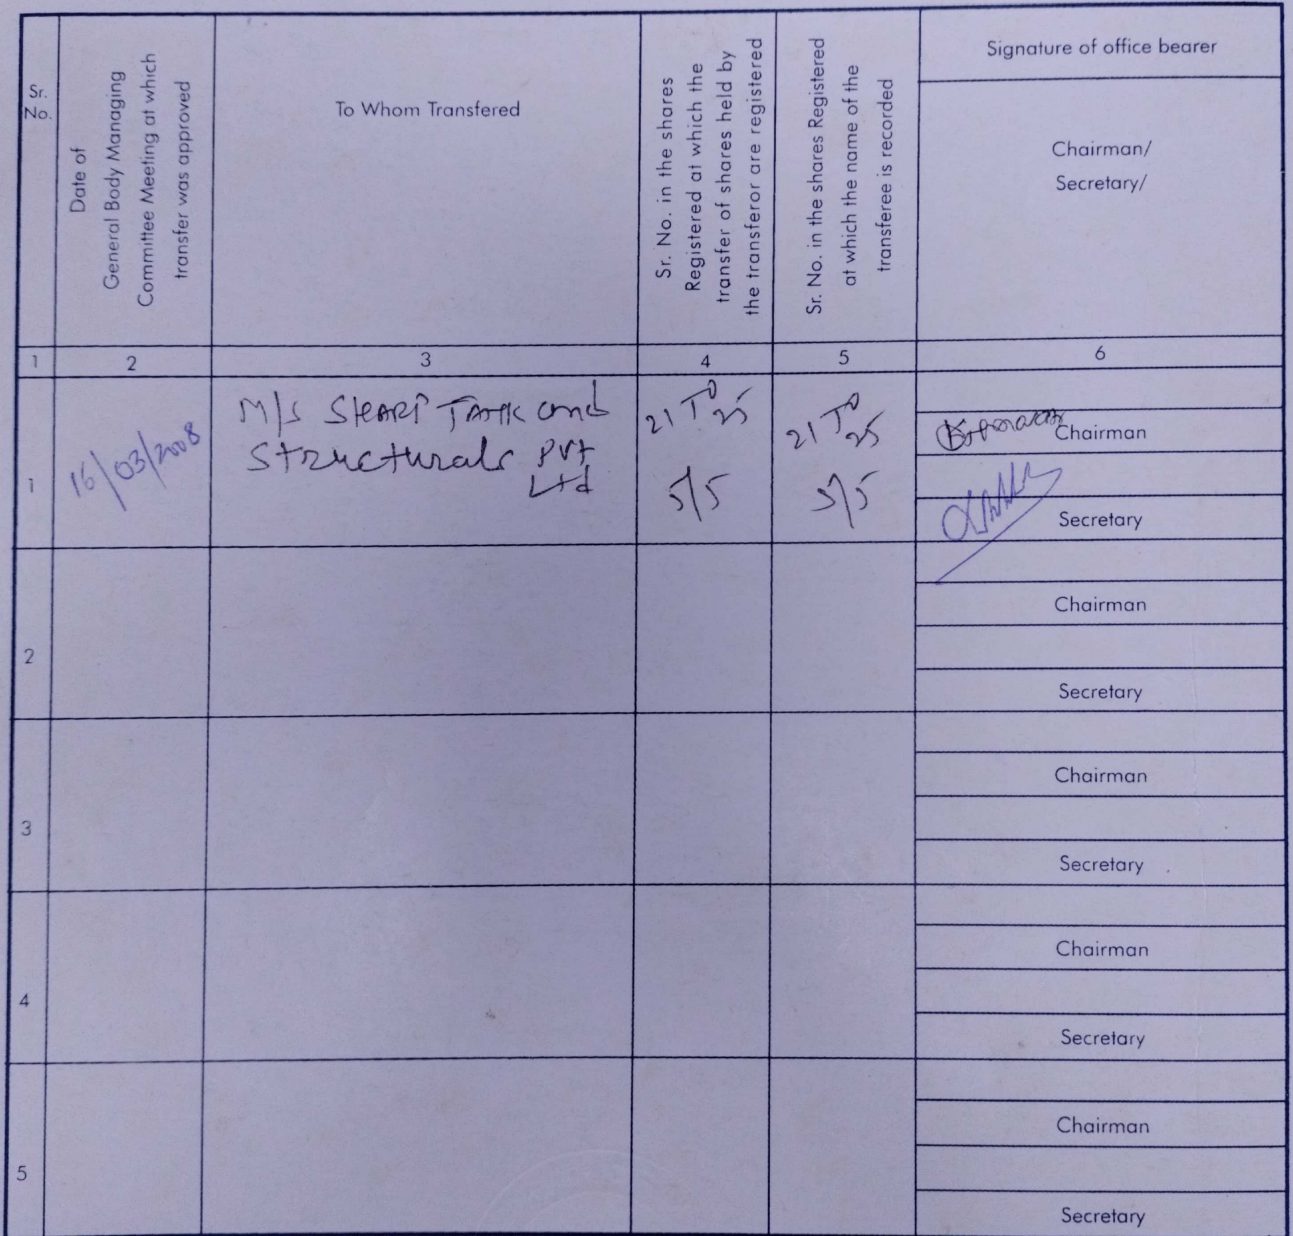 Sr.
No.
Date of
General Body Managing
Committee Meeting at which
transfer was approved
To Whom Transfered
Sr. No. in the shares
Registered at which the
transfer of shares held by
the transferor are registered
Sr. No. in the shares Registered
at which the name of the
transferee is recorded
Signature of office bearer
Chairman/
Secretary/
1 2 3 4 5 6
1
16/03/2008
M/S Tank and
Structurals Pvt
Ltd
21 To 25
5/5
21 To 25
5/5
Chairman
Secretary
2
Chairman
Secretary
3
Chairman
Secretary
4
Chairman
Secretary
5
Chairman
Secretary